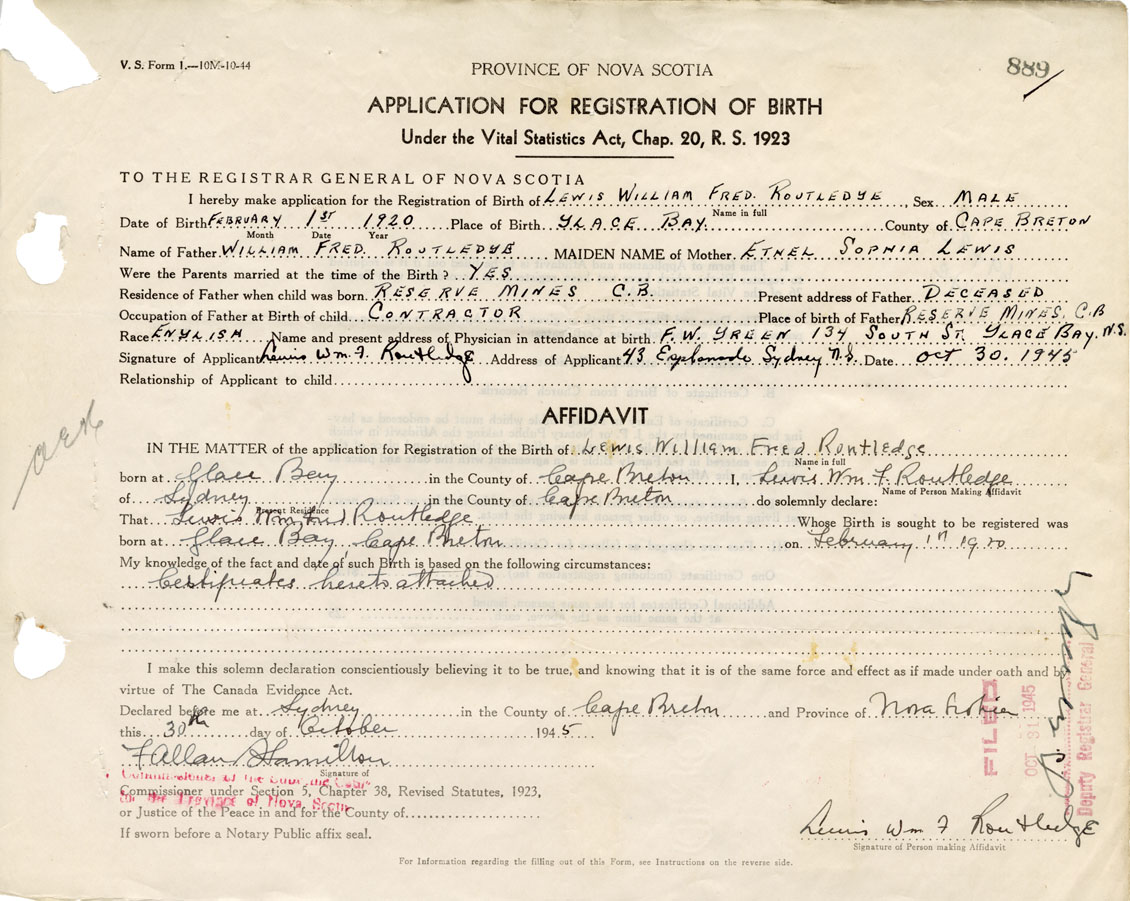 V. S. Form 1.—10M-10-44
PROVINCE OF NOVA SCOTIA
889
APPLICATION FOR REGISTRATION OF BIRTH
Under the Vital Statistics Act, Chap. 20, R. S. 1923
TO THE REGISTRAR GENERAL OF NOVA SCOTIA
I hereby make application for the Registration of Birth of LEWIS WILLIAM FRED. ROUTLEDGE, Sex MALE
Name in full
Date of Birth FEBRUARY 1ST 1920 Place of Birth GLACE BAY. County of CAPE BRETON
Month Date Year
Name of Father WILLIAM FRED. ROUTLEDGE MAIDEN NAME of Mother. ETHEL SOPHIA LEWIS
Were the Parents married at the time of the Birth? YES
Residence of Father when child was born RESERVE MINES C.B. Present address of Father DECEASED
Occupation of Father at Birth of child CONTRACTOR Place of birth of Father RESERVE MINES, C.B
Race ENGLISH Name and present address of Physician in attendance at birth. F.W. GREEN 134 SOUTH ST. GLACE BAY. N.S.
Signature of Applicant Lewis Wm. F. Routledge Address of Applicant 43 Esplanade Sydney N.S. Date Oct 30. 1945
Relationship of Applicant to child
AFFIDAVIT
IN THE MATTER of the application for Registration of the Birth of Lewis William Fred Routledge
Name in full
born at Glace Bay in the County of Cape Breton I, Lewis Wm. F. Routledge
Name of Person Making Affidavit
of Sydney in the County of Cape Breton do solemnly declare:
Present Residence
That Lewis Wm Fred Routledge Whose Birth is sought to be registered was
born at Glace Bay, Cape Breton on February 1st 1920
My knowledge of the fact and date of such Birth is based on the following circumstances:
Certificates hereto attached
I make this solemn declaration conscientiously believing it to be true, and knowing that it is of the same force and effect as if made under oath and by
virtue of The Canada Evidence Act.
Declared before me at Sydney in the County of Cape Breton and Province of Nova Scotia
this 30th day of October 1945
F Allan Hamilton
Signature of
Commissioner of the Supreme Court
Commissioner under Section 5, Chapter 38, Revised Statutes, 1923,
for the Province of Nova Scotia
or Justice of the Peace in and for the County of
If sworn before a Notary Public affix seal.
Lewis Wm F Routledge
Signature of Person making Affidavit
For Information regarding the filling out of this Form, see Instructions on the reverse side.
FILED
OCT 31 1945
Deputy Registrar General